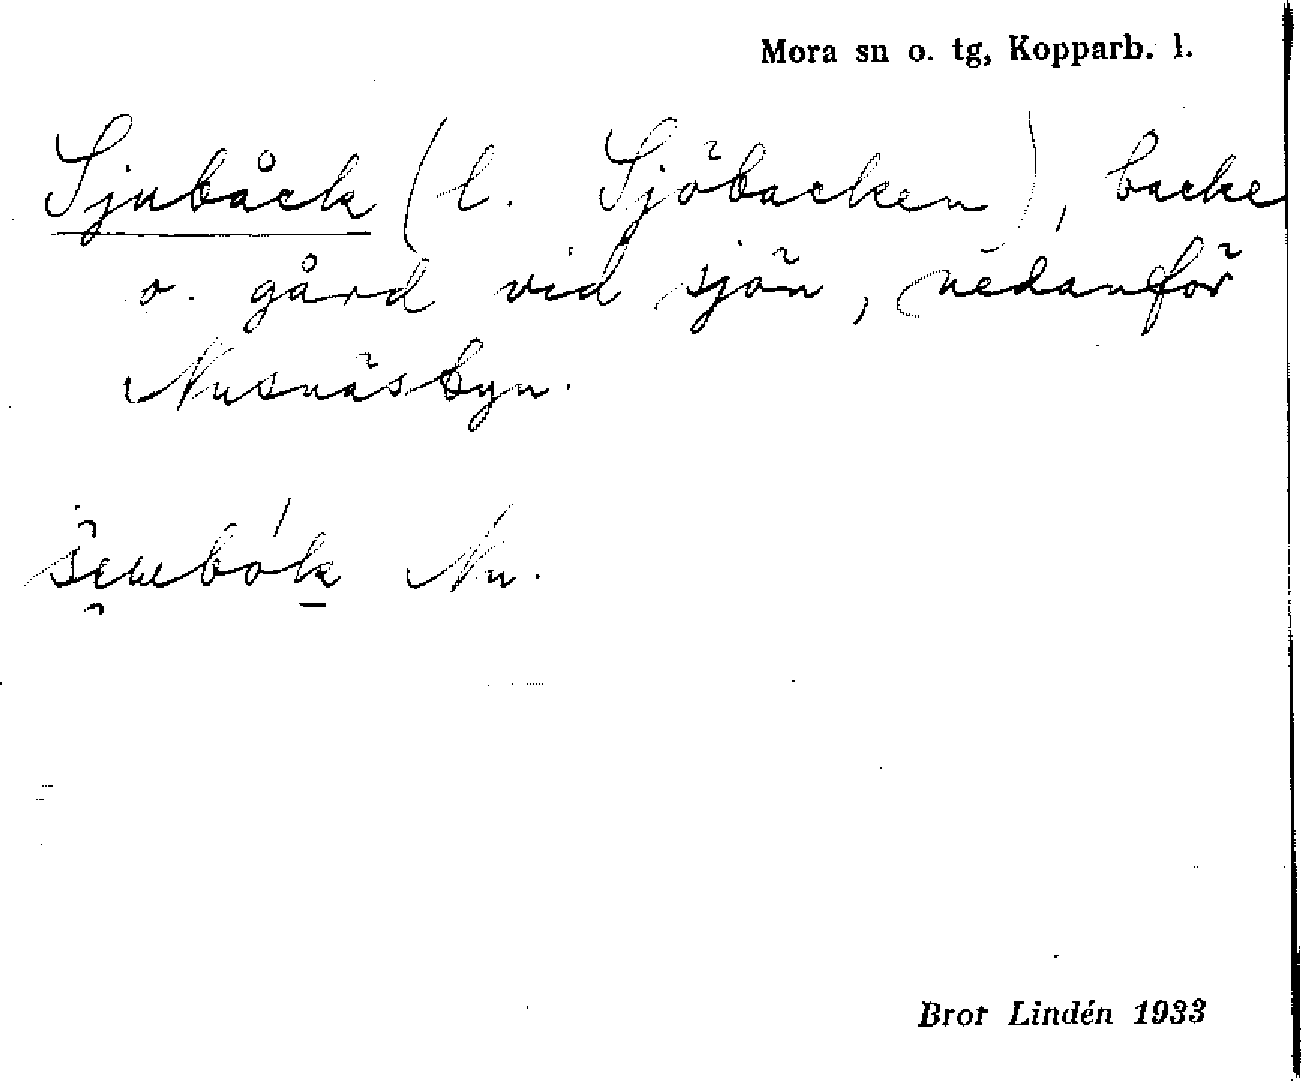 Mora sn o. tg, Kopparb. l.
Sjubåck (l. Sjöbacken), backe
o. gård vid sjön, nedanför
Nusnäsbyn.
Nu.
Bror Lindén 1933